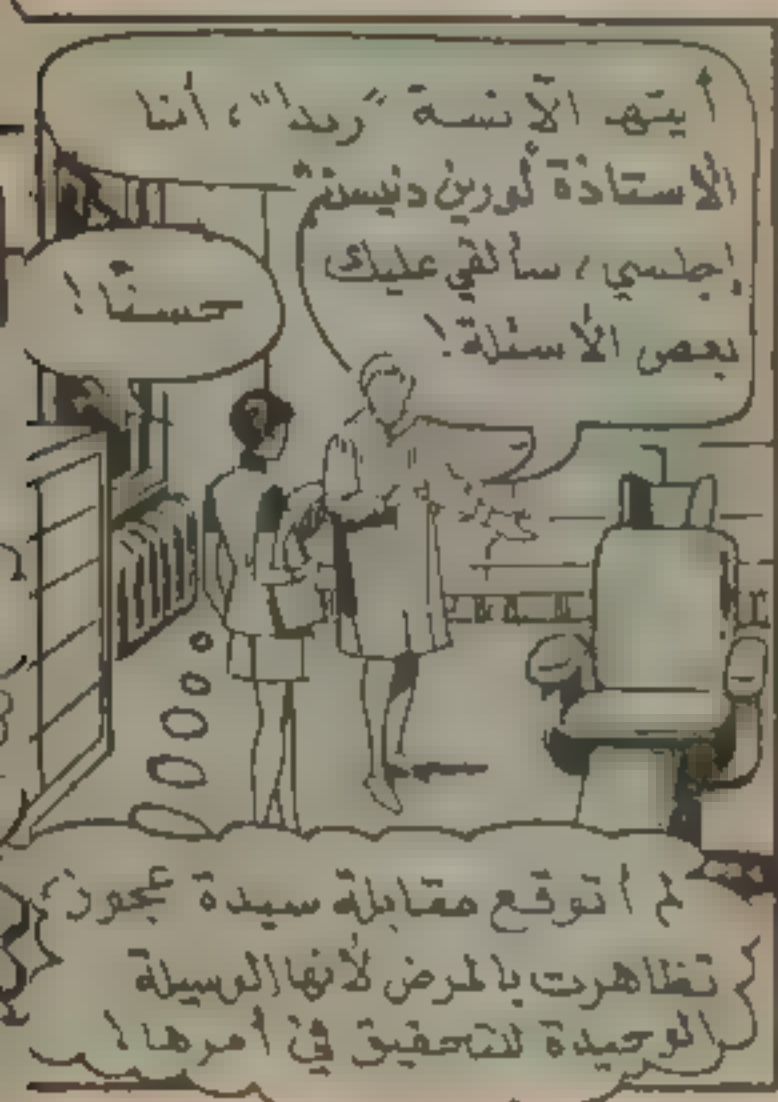 أيتها الآنسة "ريدا"، أنا
الأستاذة لورين دنيس،
إجلسي، سألقي عليك
بعض الأسئلة!
حسنًا!
لم أتوقع مقابلة سيدة عجوز،
تظاهرت بالمرض لأنها الوسيلة
الوحيدة للتحقيق في أمرها!